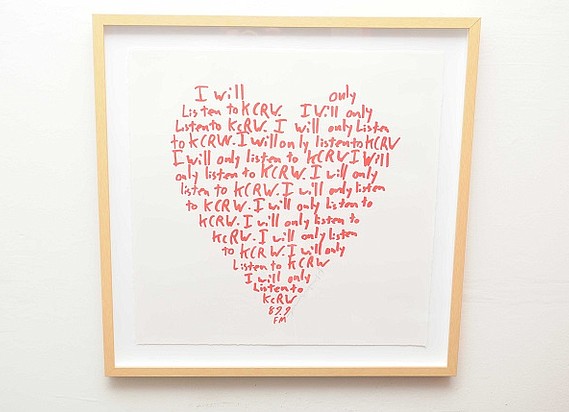 I will only
Listen to KCRW. I will only
Listen to KCRW. I will only Listen
to KCRW. I will only listen to KCRW
I will only listen to KCRW I Will
only listen to KCRW. I will only
listen to KCRW. I will only listen
to KCRW. I will only listen to
KCRW. I will only listen to
KCRW. I will only listen
to KCRW. I will only
Listen to KCRW
I will only
Listen to
KCRW
89.9
FM